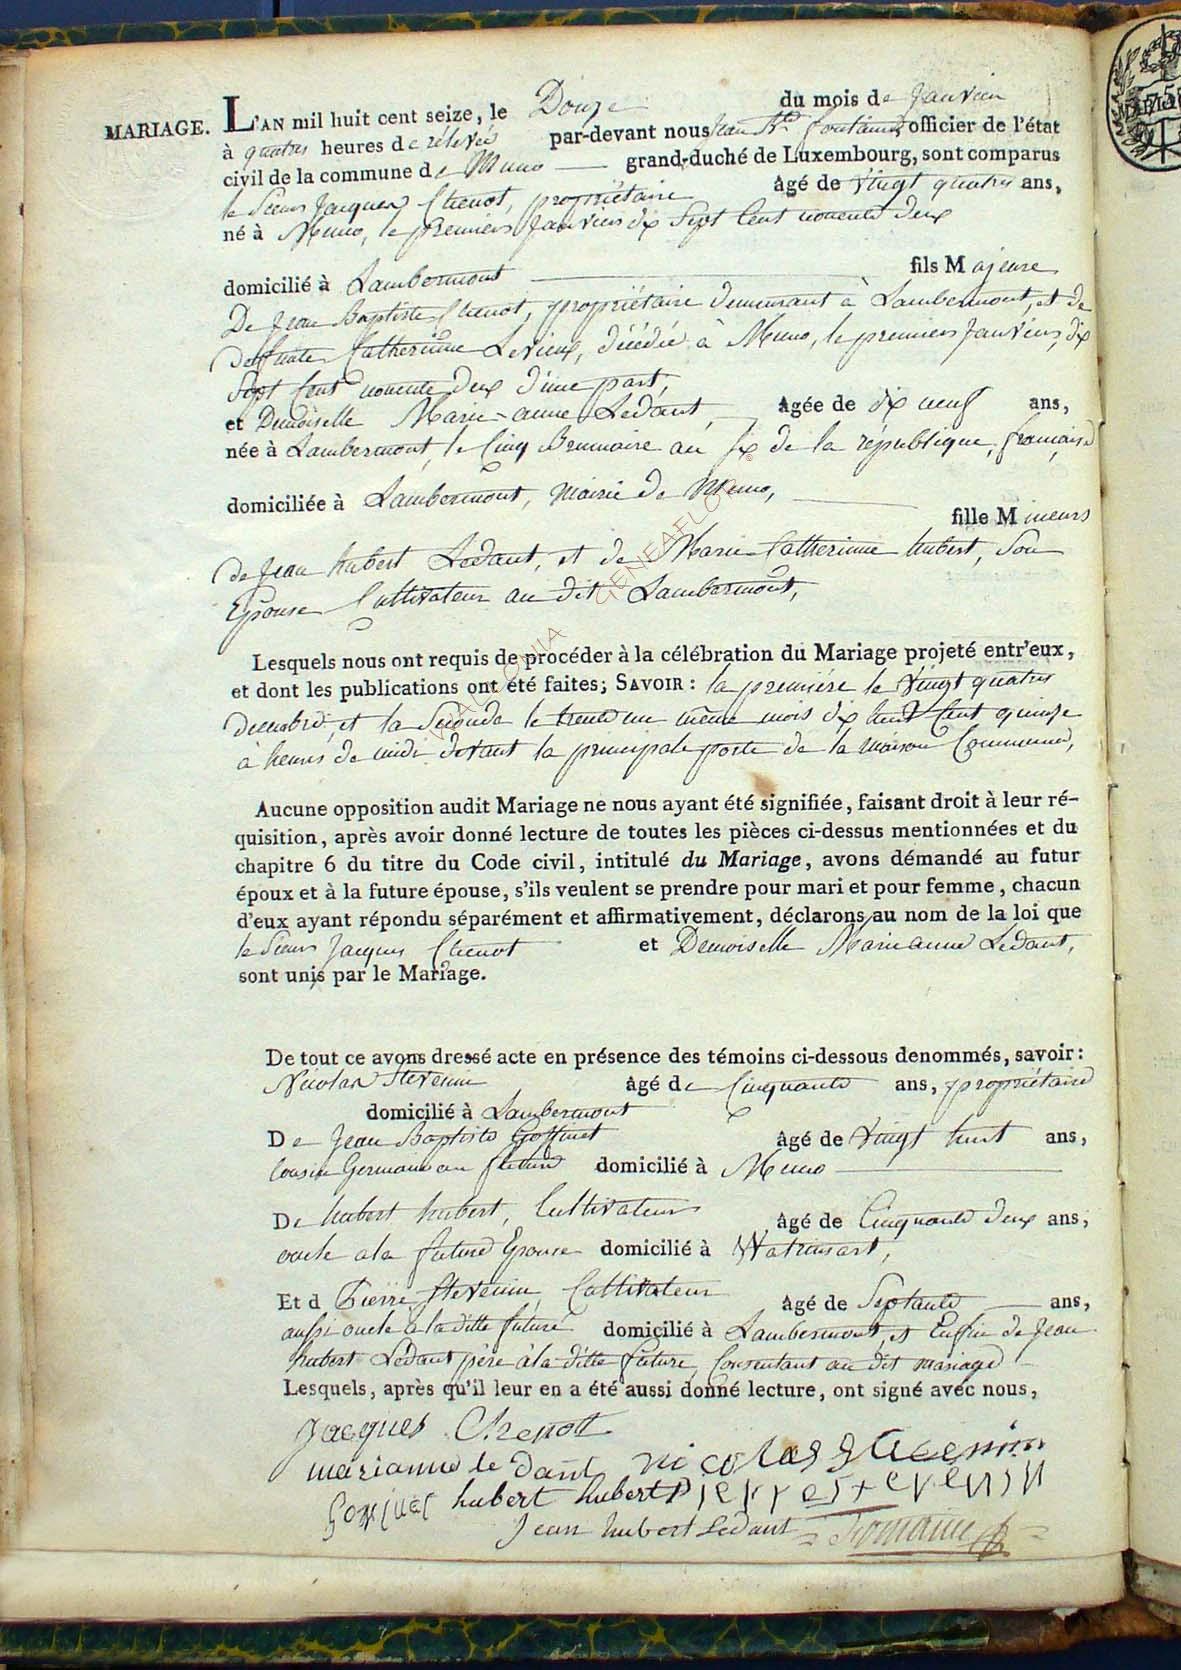 MARIAGE. L'AN mil huit cent seize, le Douze du mois de Janvier
à quatre heures de rélevée par-devant nous Jean Bte fontaine officier de l'état
civil de la commune de Muno grand-duché de Luxembourg, sont comparus
le Sieur Jacques Chenot, propriétaire âgé de Vingt quatre ans,
né à Muno, le premier Janvier dix Sept Cent nonente deux
domicilié à Lambermont fils Majeure
De Jean Baptiste Chenot, propriétaire demeurant à Lambermont, et de
deffunte Catherinne Levieux, décédée à Muno, le premier Janvier dix
Sept Cent nonente deux d'une part,
et Demoiselle Marie-anne Ledant, âgée de dix neuf ans,
née à Lambermont, le Cinq Brumaire an six de la république française
domiciliée à Lambermont, Mairie de Muno,
fille Mineure
de Jean hubert Ledant, et de Marie Catherinne hubert, Son
Epouse Cultivateur au dit Lambermont,
Lesquels nous ont requis de procéder à la célébration du Mariage projeté entr'eux,
et dont les publications ont été faites; SAVOIR: la première le Vingt quatre
decembre, et la Seconde le trente un même mois dix huit Cent quinze
à heures de midi devant la principale porte de la maison Commune,
Aucune opposition audit Mariage ne nous ayant été signifiée, faisant droit à leur ré-
quisition, après avoir donné lecture de toutes les pièces ci-dessus mentionnées et du
chapitre 6 du titre du Code civil, intitulé du Mariage, avons démandé au futur
époux et à la future épouse, s'ils veulent se prendre pour mari et pour femme, chacun
d'eux ayant répondu séparément et affirmativement, déclarons au nom de la loi que
le Sieur Jacques Chenot et Demoiselle Marie anne Ledant,
sont unis par le Mariage.
De tout ce avons dressé acte en présence des témoins ci-dessous denommés, savoir:
Nicolas Stevenin âgé de Cinquante ans, propriétaire
domicilié à Lambermont
De Jean Baptiste Goffinet âgé de Vingt huit ans,
Cousin Germain au futur domicilié à Muno
De hubert hubert, Cultivateur âgé de Cinquante deux ans,
oncle a la future Epouse domicilié à Watrinsart,
Et d Pierre Stevenin, Cultivateur âgé de Septante ans,
aussi oncle à la ditte future domicilié à Lambermont, et Enfin de Jean
hubert Ledant père à la ditte future, Consentant au dit mariage
Lesquels, après qu'il leur en a été aussi donné lecture, ont signé avec nous,
Jacques Chenott
marianne le dant nicolas stevenin
hubert hubert pierre stevenin
Jean hubert Ledant fontaine
WALLONIA GENEAFLOR ©
MARIAGE